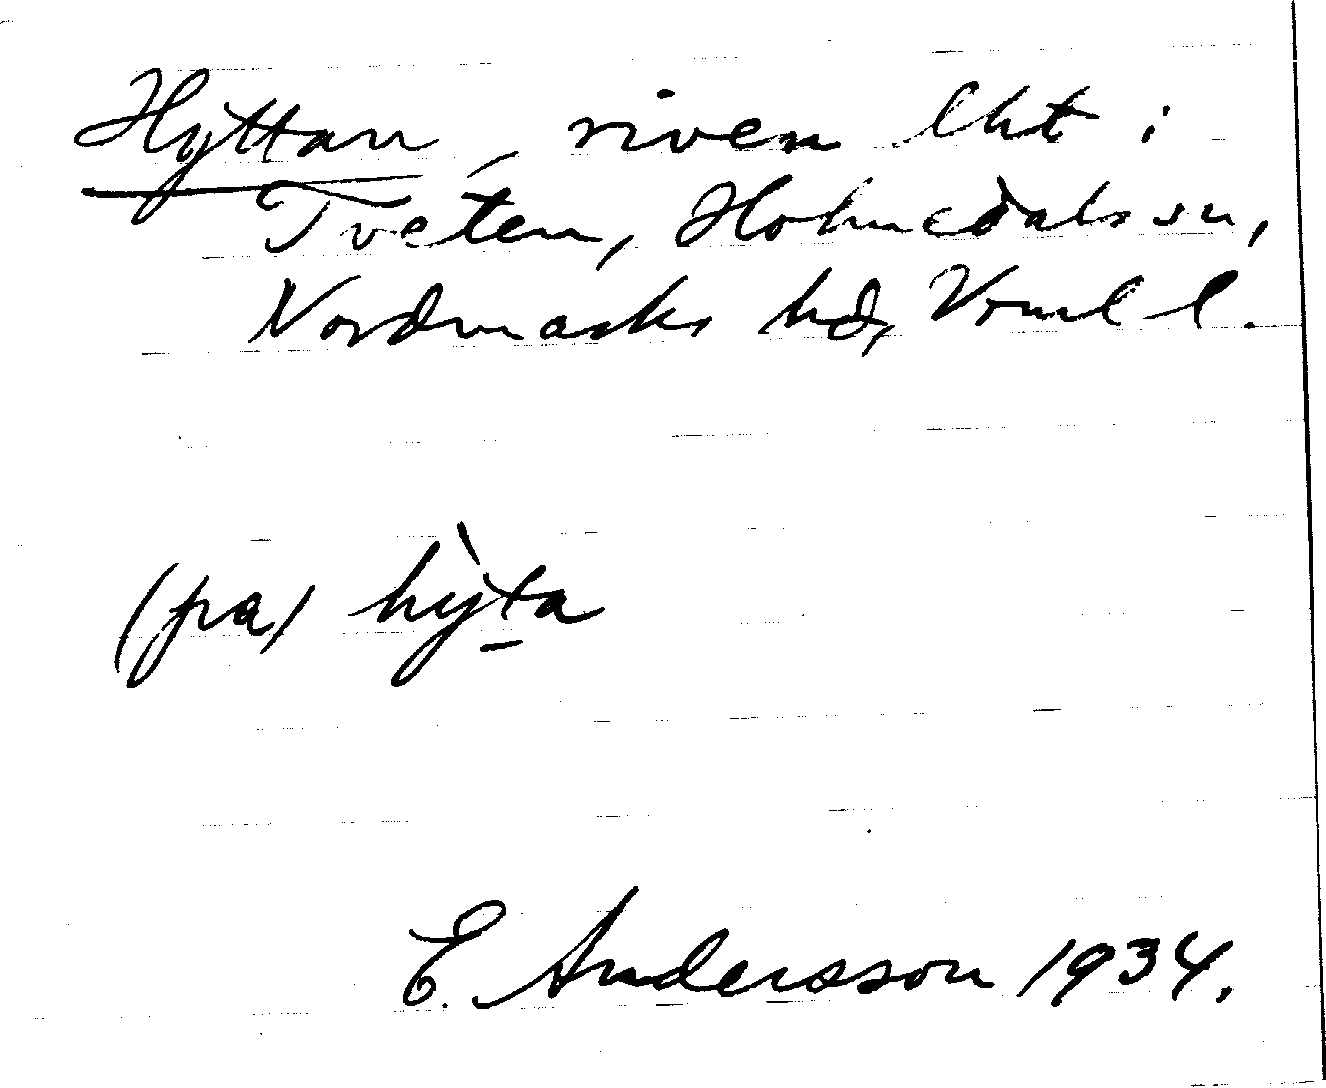 Hyttan, riven lht i
Tveten, Holmedals sn,
Nordmarks hd, Vrml l.
(pa) hỳta
E. Andersson 1934.